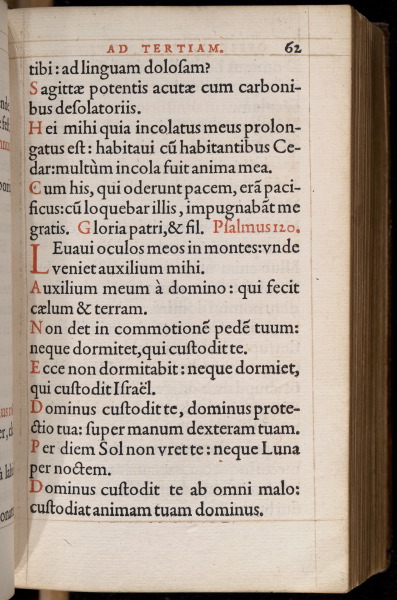 AD TERTIAM. 62
tibi: ad linguam dolosam?
Sagittæ potentis acutæ cum carboni-
bus desolatoriis.
Hei mihi quia incolatus meus prolon-
gatus est: habitaui cū habitantibus Ce-
dar: multùm incola fuit anima mea.
Cum his, qui oderunt pacem, erā paci-
ficus: cū loquebar illis, impugnabāt me
gratis. Gloria patri, & fil. Psalmus 120.
LEuaui oculos meos in montes: vnde
veniet auxilium mihi.
Auxilium meum à domino: qui fecit
cælum & terram.
Non det in commotionē pedē tuum:
neque dormitet, qui custodit te.
Ecce non dormitabit: neque dormiet,
qui custodit Israël.
Dominus custodit te, dominus prote-
ctio tua: super manum dexteram tuam.
Per diem Sol non vret te: neque Luna
per noctem.
Dominus custodit te ab omni malo:
custodiat animam tuam dominus.